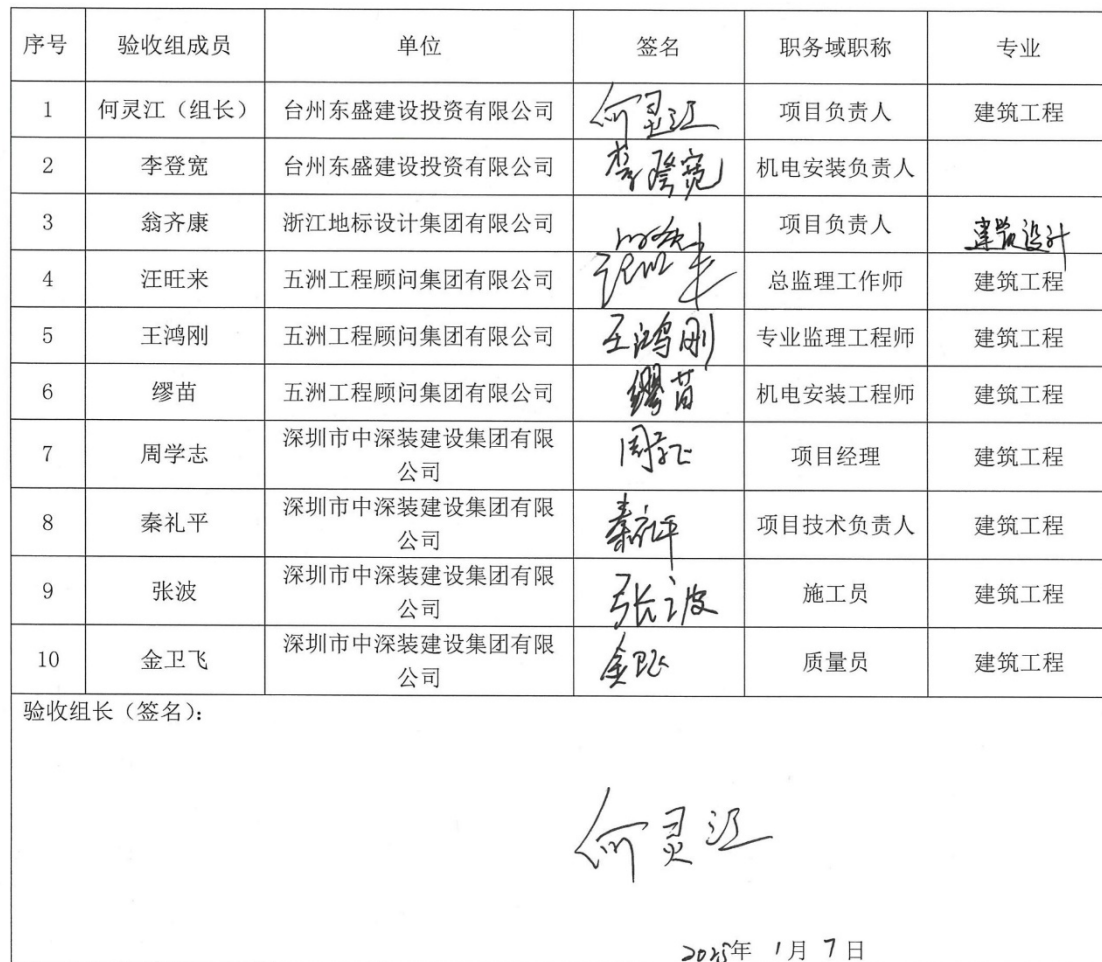 序号 验收组成员 单位 签名 职务域职称 专业
1 何灵江（组长） 台州东盛建设投资有限公司 何灵江 项目负责人 建筑工程
2 李登宽 台州东盛建设投资有限公司 李登宽 机电安装负责人
3 翁齐康 浙江地标设计集团有限公司 项目负责人 建筑设计
4 汪旺来 五洲工程顾问集团有限公司 总监理工作师 建筑工程
5 王鸿刚 五洲工程顾问集团有限公司 王鸿刚 专业监理工程师 建筑工程
6 缪苗 五洲工程顾问集团有限公司 缪苗 机电安装工程师 建筑工程
7 周学志 深圳市中深装建设集团有限 周学志 项目经理 建筑工程
公司
8 秦礼平 深圳市中深装建设集团有限 秦礼平 项目技术负责人 建筑工程
公司
9 张波 深圳市中深装建设集团有限 张波 施工员 建筑工程
公司
10 金卫飞 深圳市中深装建设集团有限 金卫飞 质量员 建筑工程
公司
验收组长（签名）：
何灵江
2025年 1月 7日